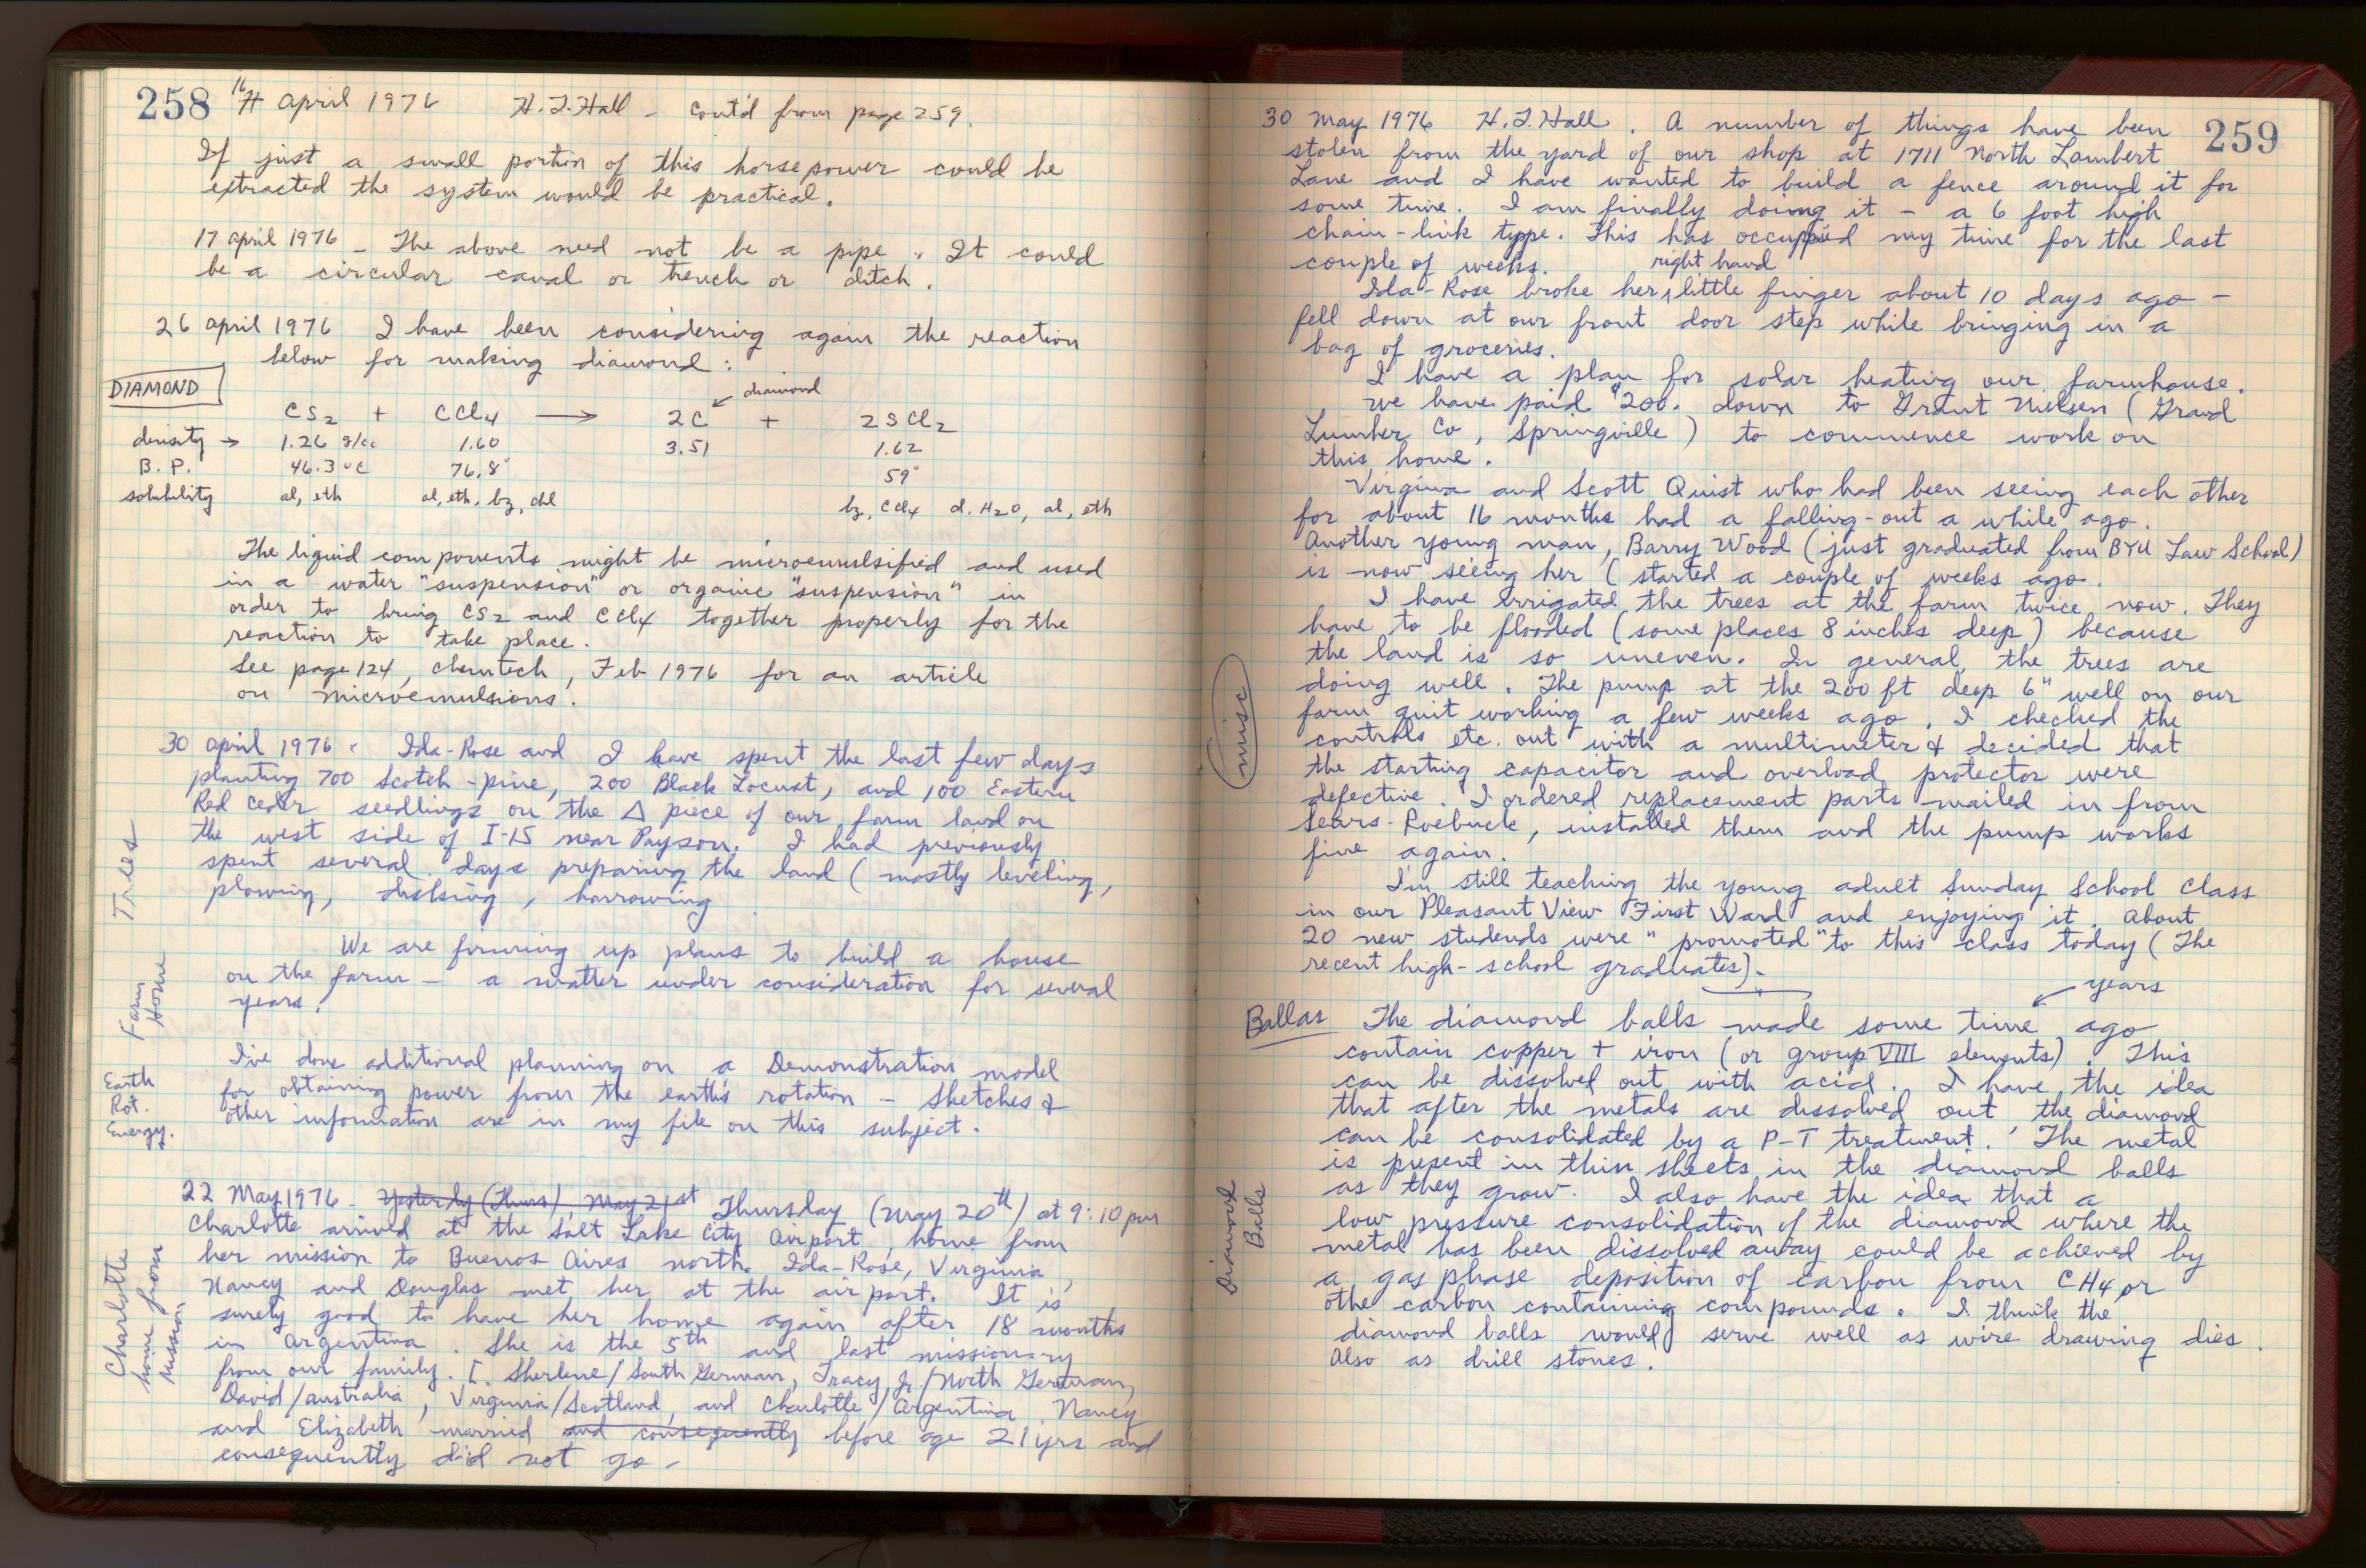 258 16 April 1976 H.T. Hall - Cont'd from page 259.
If just a small portion of this horsepower could be
extracted the system would be practical.
17 April 1976 - The above need not be a pipe. It could
be a circular canal or trench or ditch.
26 April 1976 I have been considering again the reaction
below for making diamond:
DIAMOND
diamond
CS2 + CCl4 → 2C + 2SCl2
density → 1.26 g/cc 1.60 3.51 1.62
B.P. 46.3°C 76.8° 59°
solubility al, eth al, eth, bz, chl bz, CCl4 d. H2O, al, eth
The liquid components might be microemulsified and used
in a water "suspension" or organic "suspension" in
order to bring CS2 and CCl4 together properly for the
reaction to take place.
See page 124, Chemtech, Feb 1976 for an article
on microemulsions.
30 April 1976. Ida-Rose and I have spent the last few days
planting 700 Scotch-pine, 200 Black Locust, and 100 Eastern
Red Ceder seedlings on the Δ piece of our farm land on
the west side of I-15 near Payson. I had previously
spent several days preparing the land (mostly leveling,
plowing, disking, harrowing
Trees
We are firming up plans to build a house
on the farm - a matter under consideration for several
years.
Farm
Home
I've done additional planning on a Demonstration model
for obtaining power from the earth's rotation - Sketches &
other information are in my file on this subject.
Earth
Rot.
Energy.
22 May 1976 - Yesterdy (Thurs), May 21st Thursday (May 20th) at 9:10 pm
Charlotte arrived at the Salt Lake City Airport, home from
her mission to Buenos Aires north. Ida-Rose, Virginia,
Nancy and Douglas met her at the airport. It is
surely good to have her home again after 18 months
in Argentina. She is the 5th and last missionary
from our family. [. Sherlene/South German, Tracy Jr/North German,
David/Australia, Virginia/Scotland, and Charlotte/Argentina. Nancy
and Elizabeth married and consequently before age 21 yrs and
consequently did not go.
Charlotte
home from
Mission
30 May 1976 H.T. Hall. A number of things have been 259
stolen from the yard of our shop at 1711 North Lambert
Lane and I have wanted to build a fence around it for
some time. I am finally doing it - a 6 foot high
chain-link type. This has occupied my time for the last
couple of weeks.
right hand
Ida-Rose broke her little finger about 10 days ago -
fell down at our front door step while bringing in a
bag of groceries.
I have a plan for solar heating our farmhouse.
We have paid $200. down to Grant Nielsen (Grand
Lumber Co, Springville) to commence work on
this home.
Virginia and Scott Quist who had been seeing each other
for about 16 months had a falling-out a while ago.
Another young man, Barry Wood (just graduated from BYU Law School)
is now seeing her (started a couple of weeks ago.
I have irrigated the trees at the farm twice now. They
have to be flooded (some places 8 inches deep) because
the land is so uneven. In general, the trees are
doing well. The pump at the 200 ft deep 6" well on our
farm quit working a few weeks ago. I checked the
controls etc. out with a multimeter & decided that
the starting capacitor and overload protector were
defective. I ordered replacement parts mailed in from
Sears-Roebuck, installed them and the pump works
fine again.
misc
I'm still teaching the young adult Sunday School Class
in our Pleasant View First Ward and enjoying it. About
20 new studends were "promoted" to this class today (The
recent high-school graduates).
years
Ballas The diamond balls made some time ago
contain copper + iron (or group VIII elements). This
can be dissolved out with acid. I have the idea
that after the metals are dissolved out, the diamond
can be consolidated by a P-T treatment. The metal
is present in thin sheets in the diamond balls
as they grow. I also have the idea that a
low pressure consolidation of the diamond where the
metal has been dissolved away could be achieved by
a gas phase deposition of carbon from CH4 or
othe carbon containing compounds. I think the
diamond balls would serve well as wire drawing dies.
Also as drill stones.
Diamond
Balls